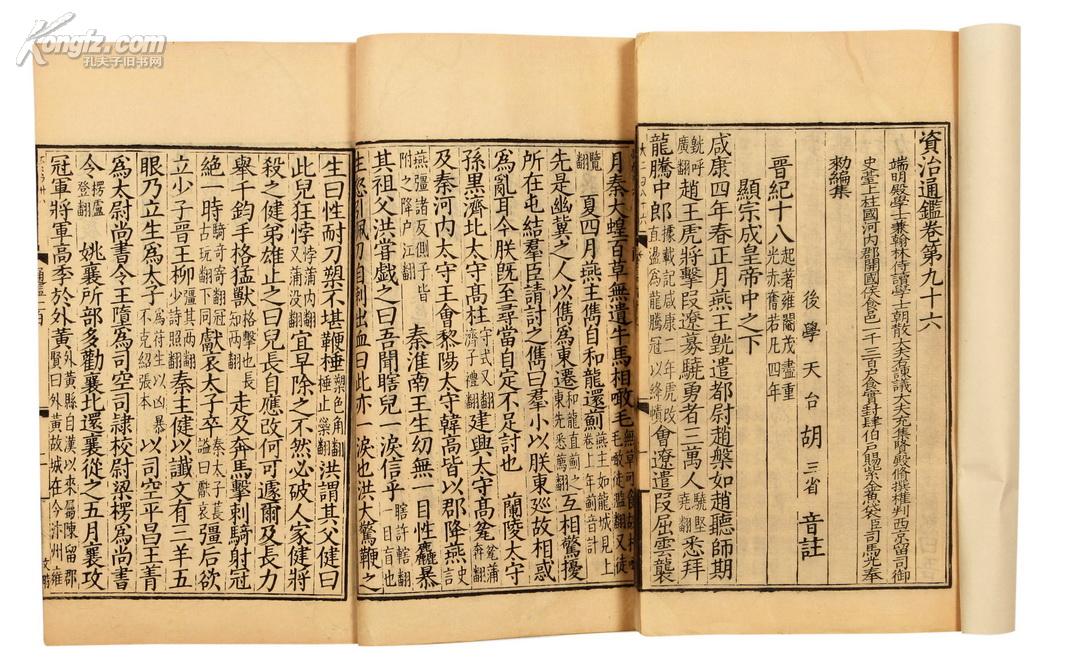 Kongfz.com
孔夫子旧书网
資治通鑑卷第九十六
端明殿學士兼翰林侍讀學士朝散大夫右諫議大夫充集賢殿修撰權判西京留司御
史臺上柱國河內郡開國侯食邑一千三百戶食實封肆伯戶賜紫金魚袋臣司馬光奉
勑編集
後學天台胡三省音註
晉紀十八起著雍閹茂盡重光赤奮若凡四年
顯宗成皇帝中之下
咸康四年春正月燕王皝遣都尉趙槃如趙聽師期
皝呼廣翻趙王虎將擊段遼募驍勇者三萬人驍堅堯翻悉拜
龍騰中郎會遼遣段屈雲襲
月秦大蝗百草無遺牛馬相噉毛
夏四月燕主儁自和龍還薊
先是幽冀之人以儁為東遷互相驚擾
所在屯結羣臣請討之儁曰羣小以朕東巡故相惑
為亂耳今朕既至尋當自定不足討也 蘭陵太守
孫黑濟北太守高柱建興太守高瓫
及秦河內太守王會黎陽太守韓高皆以郡降燕
秦淮南王生幼無一目性麤暴
其祖父洪嘗戲之曰吾聞瞎兒一淚信乎
生怒引佩刀自刺出血曰此亦一淚也洪大驚鞭之
生曰性耐刀槊不堪鞭棰洪謂其父健曰
此兒狂悖宜早除之不然必破人家健將
殺之健弟雄止之曰兒長自應改何可遽爾及長力
舉千鈞手格猛獸走及奔馬擊刺騎射冠
絕一時獻哀太子卒彊后欲
立少子晉王柳秦主健以讖文有三羊五
眼乃立生為太子以司空平昌王菁
為太尉尚書令王墮為司空司隷校尉梁楞為尚書
令姚襄所部多勸襄北還襄從之五月襄攻
冠軍將軍高季於外黃